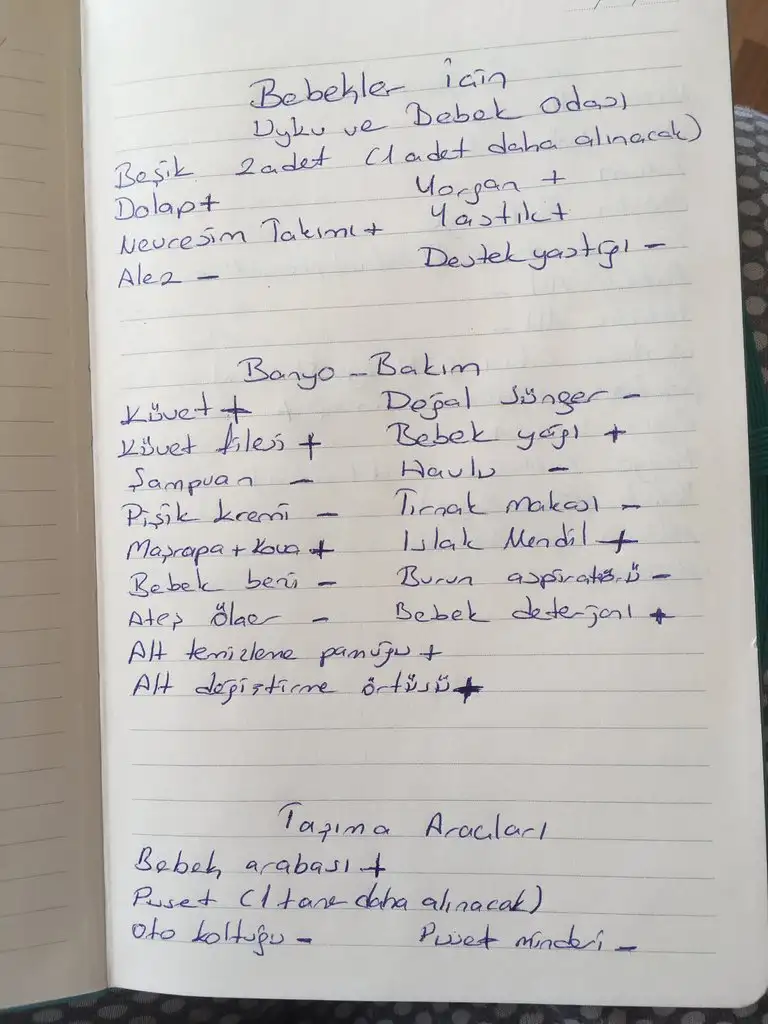 Bebekler için
Uyku ve Bebek Odası
Beşik 2 adet (1 adet daha alınacak)
Dolap + Yorgan +
Nevresim Takımı + Yastık +
Alez - Destek yastığı -
Banyo - Bakım
Küvet + Doğal Sünger -
Küvet filesi + Bebek yağı +
Şampuan - Havlu -
Pişik kremi - Tırnak makası -
Maşrapa + Kova + Islak Mendil +
Bebek bezi - Burun aspiratörü -
Ateş ölçer - Bebek deterjanı +
Alt temizleme pamuğu +
Alt değiştirme örtüsü +
Taşıma Araçları
Bebek arabası +
Puset (1 tane daha alınacak)
Oto koltuğu - Puset minderi -